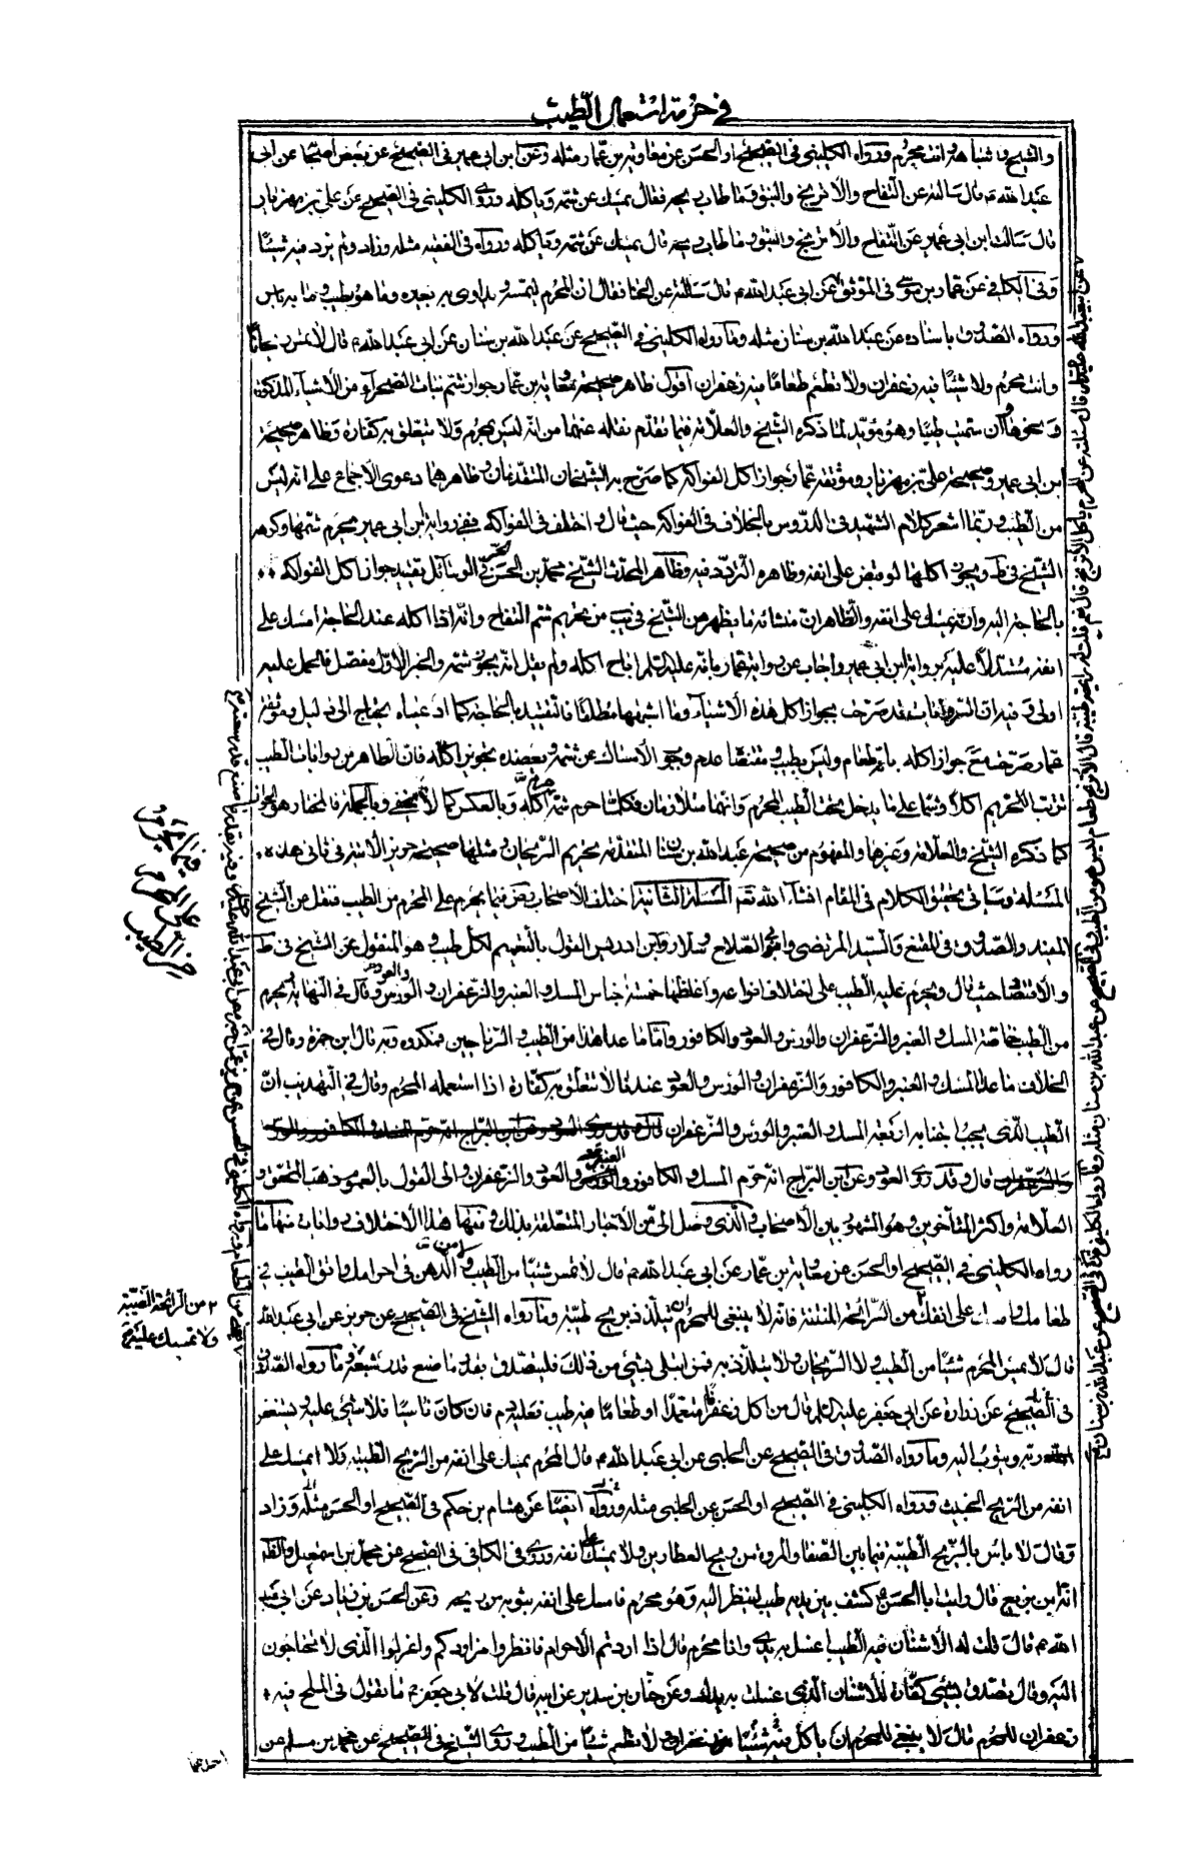 في حرمة استعمال الطيب
والشيح واشباهه وانت محرم ورواه الكليني في الصحيح او الحسن عن معاوية بن عمار مثله وعن ابن ابي عمير في الصحيح عن بعض اصحابنا عن ابي
عبد الله ع قال سالته عن التفاح والاترج والنبق وما طاب ريحه فقال يمسك عن شمه وياكله وروى الكليني في الصحيح عن علي بن مهزيار
قال سالت ابن ابي عمير عن التفاح والاترج والنبق وما طاب ريحه قال يمسك عن شمه وياكله ورواه في الفقيه مثله وزاد ولم يرد فيه شيئا
وفي الكافي عن عمار بن موسى في الموثق عن ابي عبد الله ع قال سالته عن الحنا فقال ان المحرم ليمسه ويداوي به بعيره وما هو بطيب وما به باس
ورواه الصدوق باسناده عن عبد الله بن سنان مثله وما رواه الكليني في الصحيح عن عبد الله بن سنان عن ابي عبد الله ع قال لا تمس ريحانا
وانت محرم ولا شيئا فيه زعفران ولا تطعم طعاما فيه زعفران اقول ظاهر صحيحة معاوية بن عمار جواز شم نبات الصحراء من الاشياء المذكورة
ونحوها وان سميت طيبا وهو مؤيد لما ذكره الشيخ والعلامة فيما تقدم نقله عنهما من انه ليس بمحرم ولا يتعلق به كفارة وظاهر صحيحة
ابن ابي عمير وصحيحة علي بن مهزيار وموثقة عمار جواز اكل الفواكه كما صرح به الشيخان المتقدمان وظاهرهما دعوى الاجماع على انه ليس
من الطيب وربما اشعر كلام الشهيد في الدروس بالخلاف في الفواكه حيث قال واختلف في الفواكه ففي رواية ابن ابي عمير محرم شمها وكرهه
الشيخ في ط ويجوز اكلها لو قبض على انفه وظاهره التردد فيه وظاهر المحدث الشيخ محمد بن الحسن الحر في الوسائل تقييد جواز اكل الفواكه
بالحاجة اليه وان يمسك على انفه والظاهر ان منشائه ما يظهر من الشيخ في يب من تحريم شم التفاح وانه اذا اكله عند الحاجة امسك على
انفه مستدلا عليه برواية ابن ابي عمير واجاب عن رواية عمار بانه عليه السلم اباح اكله ولم يقل انه يجوز شمه والخبر الاول مفصل فالحمل عليه
اولى وفيه ان الروايات قد صرحت بجواز اكل هذه الاشياء وما اشبهها مطلقا فالتقييد بالحاجة كما ادعياه يحتاج الى دليل وموثقة
عمار صرحت مع جواز اكله بانه طعام وليس بطيب ومقتضاه عدم وجوب الامساك عن شمه ويعضده تجويز اكله فان الظاهر من روايات الطيب
ترتب التحريم اكلا وشما على ما يدخل تحت الطيب المحرم وانهما متلازمان فكلما حرم شمه حرم اكله وبالعكس كما لا يخفى وبالجملة فالمختار هو الجواز
كما ذكره الشيخ والعلامة وغيرها والمفهوم من صحيحة عبد الله بن سنان المتقدمة تحريم الريحان ومثلها صحيحة حريز الاتية في ثاني هذه
المسئلة وسياتي تحقيق الكلام في المقام انشاء الله تعه المسئلة الثانية اختلف الاصحاب رض فيما يحرم على المحرم من الطيب فنقل عن الشيخ
المفيد والصدوق في المقنع والسيد المرتضى وابي الصلاح وسلار وابن ادريس القول بالتعميم لكل طيب وهو المنقول عن الشيخ في ط
والاقتصاد حيث قال ويحرم عليه الطيب على اختلاف انواعه واغلظها خمسة اجناس المسك والعنبر والزعفران والعود والورس وقال في النهاية يحرم
من الطيب خاصة المسك والعنبر والزعفران والورس والعود والكافور واما ما عدا هذا من الطيب والرياحين فمكروه وبه قال ابن حمزة وقال في
الخلاف ما عدا المسك والعنبر والكافور والزعفران والورس والعود عندنا لا تتعلق به كفارة اذا استعمله المحرم وقال في التهذيب ان
الطيب الذي يجب اجتنابه اربعة المسك والعنبر والورس والزعفران
قال وقد روى العود وعن ابن البراج انه حرم المسك والكافور والعنبر والعود والزعفران والى القول بالعموم ذهب المحقق و
العلامة واكثر المتاخرين وهو المشهور بين الاصحاب والذي وصل الي من الاخبار المتعلقة بذلك ومنها هذا الاختلاف روايات منها ما
رواه الكليني في الصحيح او الحسن عن معاوية بن عمار عن ابي عبد الله ع قال لا تمس شيئا من الطيب ولا من الدهن في احرامك واتق الطيب في
طعامك وامسك على انفك من الرائحة المنتنة فانه لا ينبغي للمحرم ان يتلذذ بريح طيبة وما رواه الشيخ في الصحيح عن حريز عن ابي عبد الله
قال لا يمس المحرم شيئا من الطيب ولا الريحان ولا يتلذذ به فمن ابتلى بشيء من ذلك فليتصدق بقدر ما صنع قدر شبعه وما رواه الصدوق
في الصحيح عن زرارة عن ابي جعفر عليه السلم قال من اكل زعفرانا متعمدا او طعاما فيه طيب فعليه دم فان كان ناسيا فلا شيء عليه ويستغفر
ربه ويتوب اليه وما رواه الصدوق في الصحيح عن الحلبي عن ابي عبد الله ع قال المحرم يمسك على انفه من الريح الطيبة ولا يمسك على
انفه من الريح الخبيث ورواه الكليني في الصحيح او الحسن عن الحلبي مثله ورواه ايضا عن هشام بن حكم في الصحيح او الحسن مثله وزاد
وقال لا باس بالريح الطيبة فيما بين الصفا والمروة من ريح العطارين ولا يمسك على انفه وروى في الكافي في الصحيح عن محمد بن اسمعيل والظ
انه ابن بزيع قال رايت ابا الحسن ع كشف بين يديه طيب لينظر اليه وهو محرم فامسك على انفه بثوبه من ريحه وعن الحسن بن زياد عن ابي عبد
الله ع قال قلت له الاشنان فيه الطيب اغسل به يدي وانا محرم قال اذا اردتم الاحرام فانظروا مزاودكم واعزلوا الذي لا تحتاجون
اليه وقال تصدق بشيء كفارة للاشنان الذي غسلت به يدك وعن حنان بن سدير عن ابيه قال قلت لابي جعفر ع ما تقول في الملح فيه
زعفران للمحرم قال لا ينبغي للمحرم ان ياكل شيئا فيه زعفران ولا يطعم شيئا من الطيب وروى الشيخ في الصحيح عن محمد بن مسلم عن
فيما يحرم
على المحرم
من الطيب
من الرائحة الطيبة
ولا تمسك عليه
احدهما